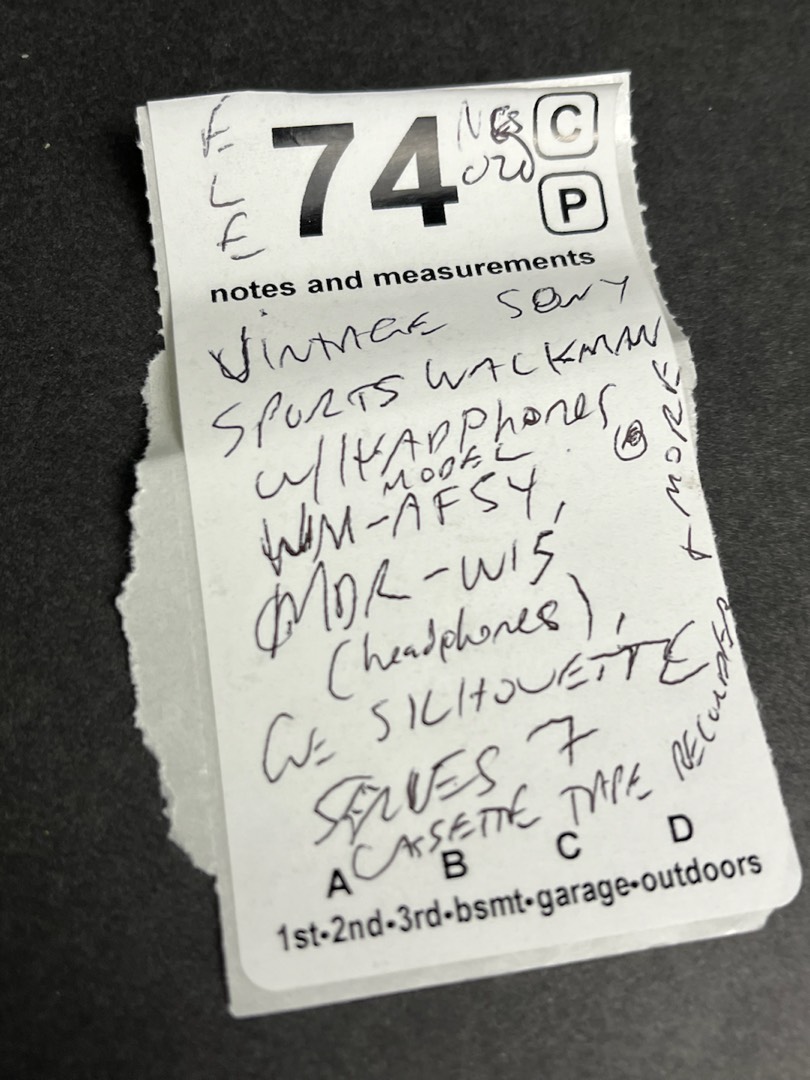 ELE
74
C
P
notes and measurements
VINTAGE SONY
SPORTS WALKMAN
W/HEADPhones
MODEL
WM-AF54,
MDR-W15
(headphones),
GE SILHOUETTE
SERIES 7
CASSETTE TAPE RECORDER + MORE
A B C D
1st•2nd•3rd•bsmt•garage•outdoors